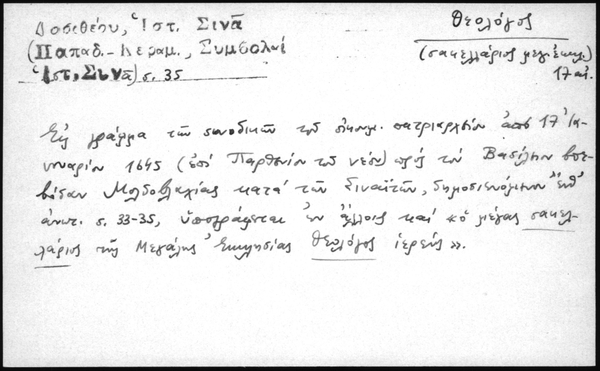 Δοσιθέου, Ἱστ. Σινᾶ
(Παπαδ.-Κεραμ., Συμβολαὶ
Ἱστ. Σινᾶ) σ. 35
Θεολόγος
(σακελλάριος μεγ. ἐκκλ.)
17 αἰ.
Εἰς γράμμα τῶν συνοδικῶν τοῦ οἰκουμ. πατριαρχείου ἀπὸ 17 Ἰα-
νουαρίου 1645 (ἐπὶ Παρθενίου τοῦ νέου) πρὸς τὸν Βασίλειον βοε-
βόδαν Μολδοβλαχίας κατὰ τῶν Σιναϊτῶν, δημοσιευόμενον ἔνθ'
ἀνωτ. σ. 33-35, ὑπογράφεται ἐν ἄλλοις καὶ «ὁ μέγας σακελ-
λάριος τῆς Μεγάλης Ἐκκλησίας Θεολόγος ἱερεύς».